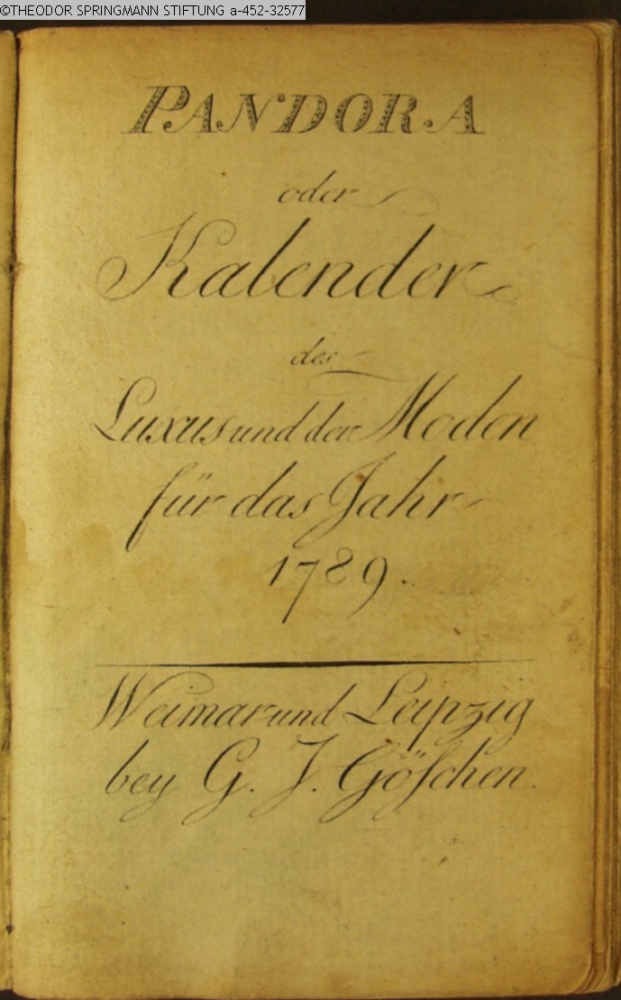 ©THEODOR SPRINGMANN STIFTUNG a-452-32577
PANDORA
oder
Kalender
des
Luxus und der Moden
für das Jahr
1789.
Weimar und Leipzig
bey G. J. Göſchen.